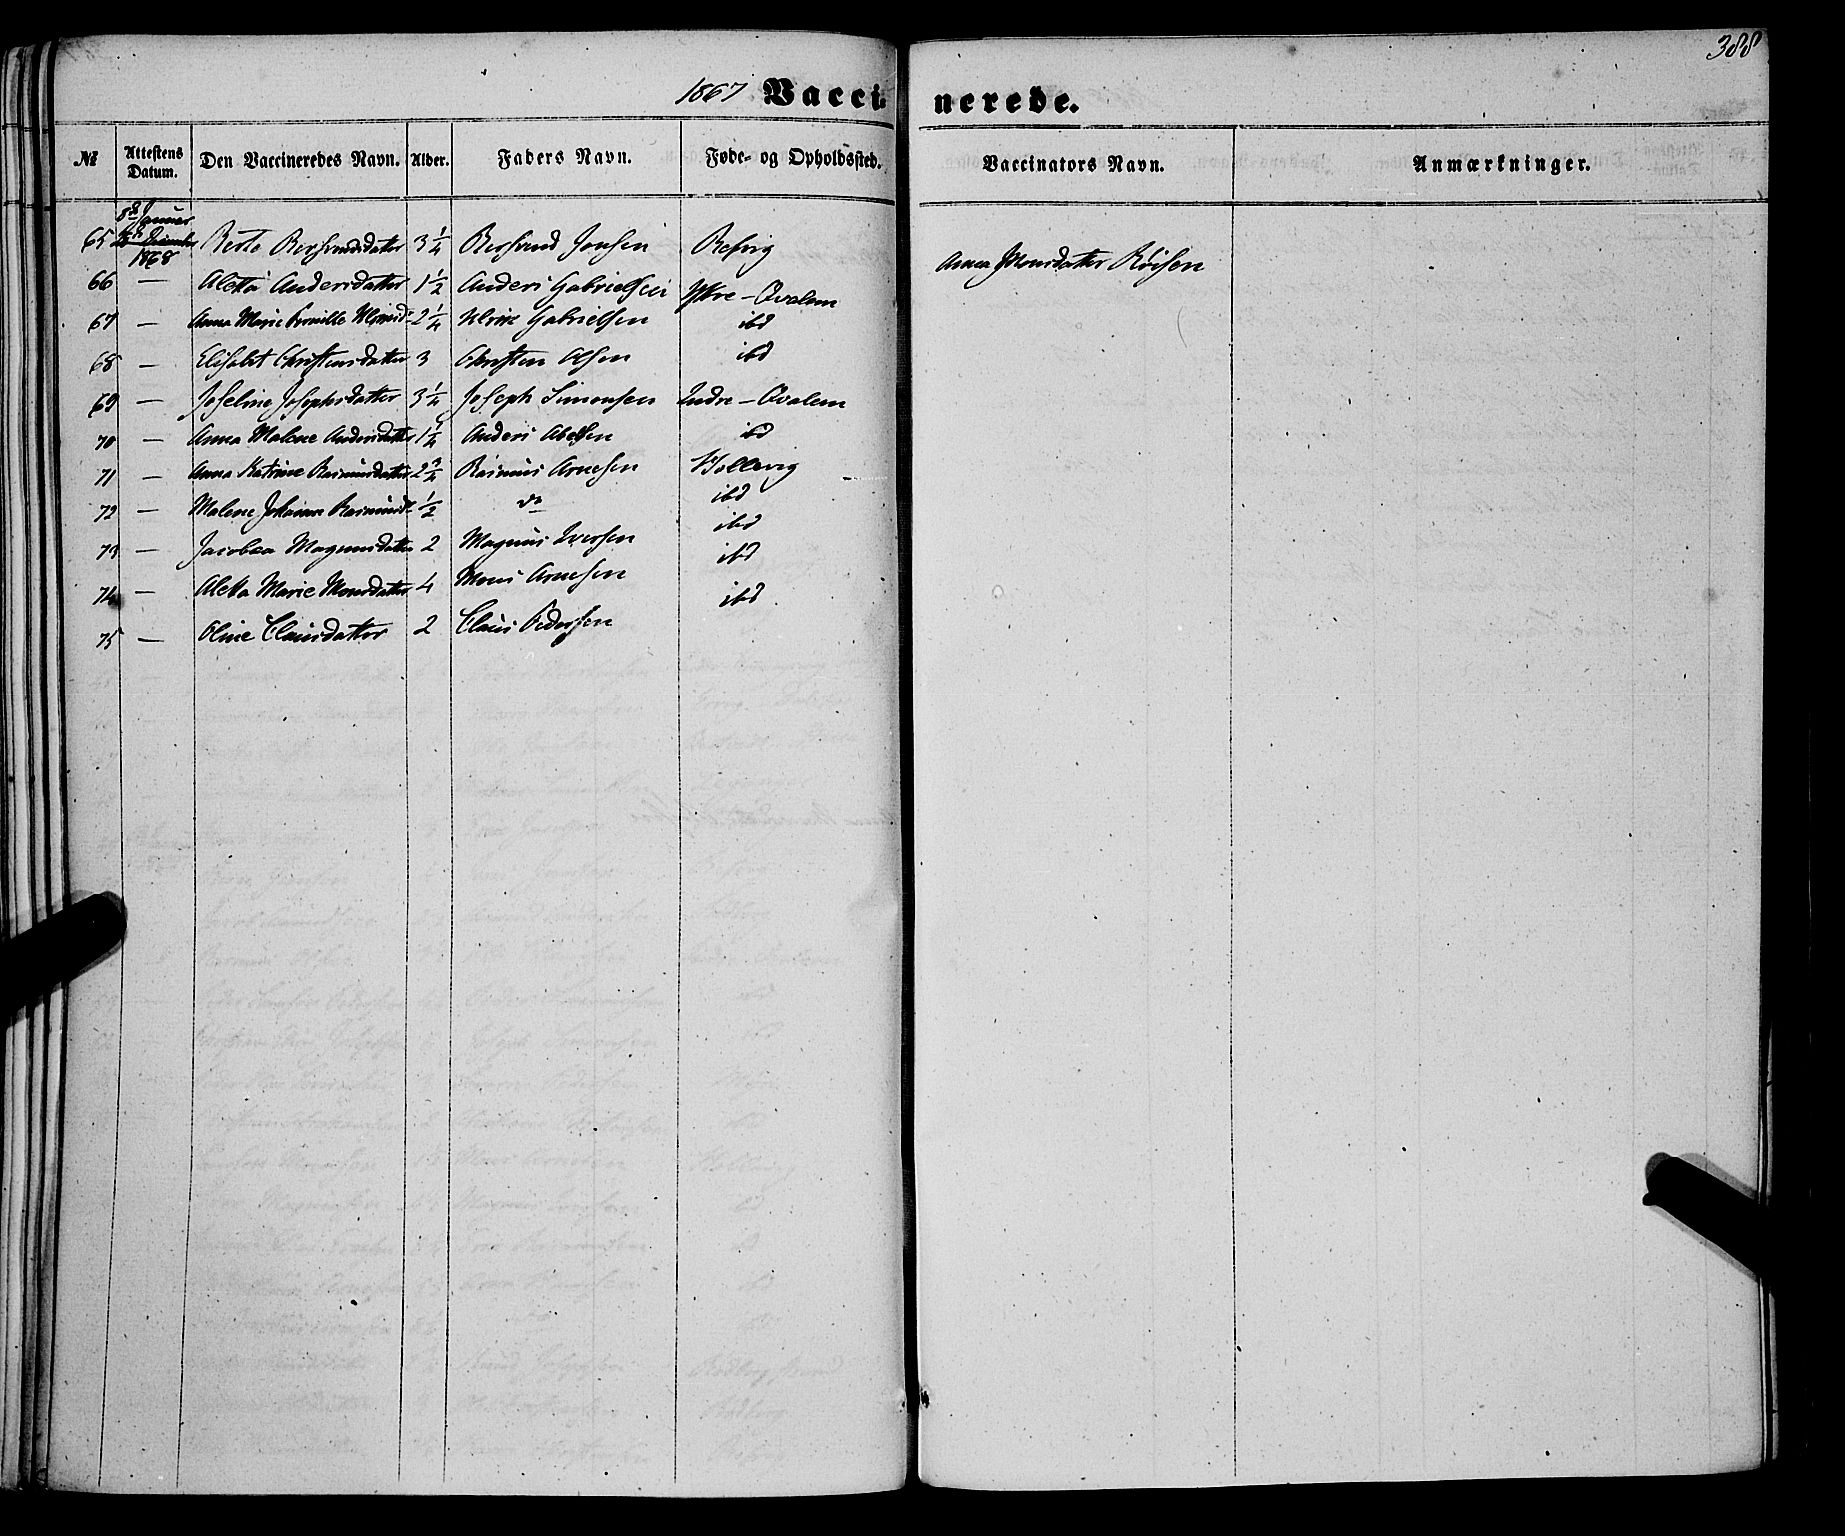 388
1867 Vaccinerede.
№ Attestens Datum. Den Vaccineredes Navn. Alder. Faders Navn. Føde- og Opholdssted. Vaccinators Navn. Anmærkninger.
8de Januar
65 1868 Berte Bersvendsdatter 3 1/4 Bersvend Jonsen Refvig Anna Monsdatter Röisen
66 — Aletta Andersdatter 1 1/2 Anders Gabrielsen Yttre-Qvalem
67 — Anna Marie Pernille Ulriksd: 2 1/4 Ulrik Gabrielsen ibd
68 — Elisabet Christensdatter 3 Christen Olsen ibd
69 — Joseline Josephsdatter 3 1/4 Joseph Simonsen Indre-Qvalem
70 — Anna Malene Andersdatter 1 1/4 Anders Abelsen ibd
71 — Anna Katrine Rasmusdatter 2 3/4 Rasmus Arnesen Hollevig
72 — Malene Johanne Rasmusd: 1/2 do ibd
73 — Jacobea Magnusdatter 2 Magnus Iversen ibd
74 — Aletta Marie Monsdatter 4 Mons Arnesen ibd
75 — Oline Clausdatter 2 Claus Pedersen ibd